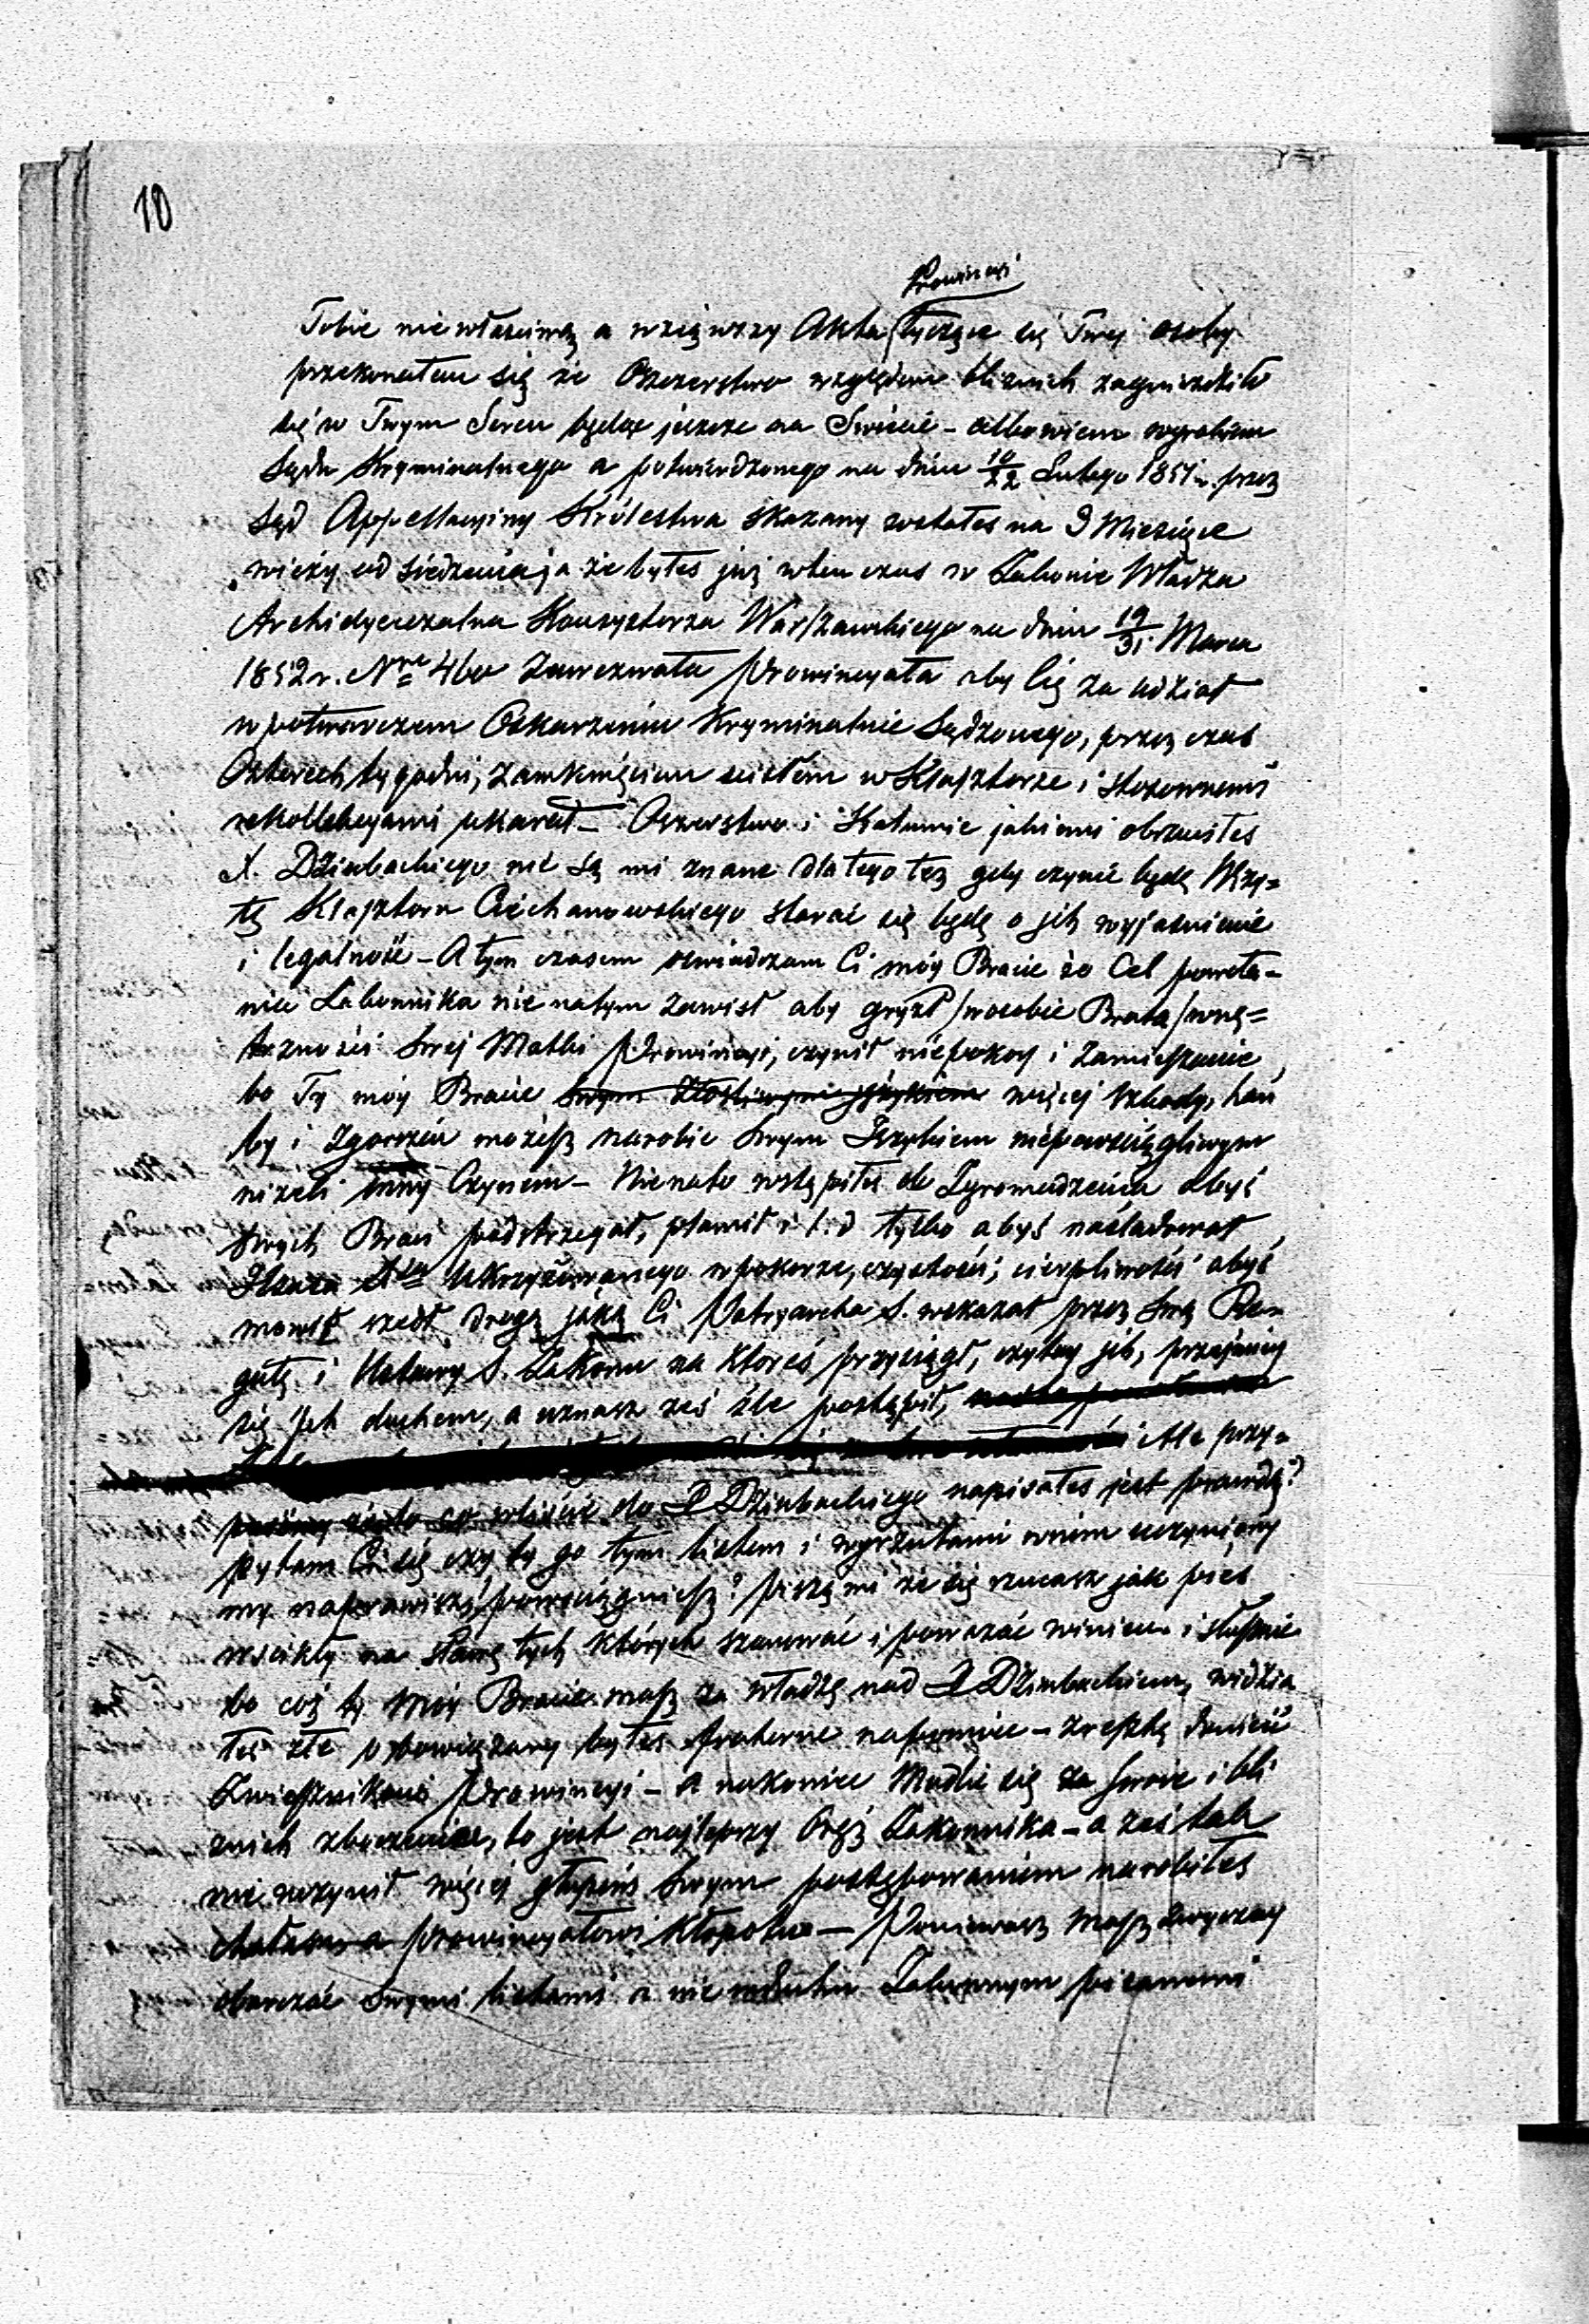 10
Prowincyi
Tobie niewłaściwą a wziąwszy Akta tyczące się Twej osoby
przekonałem się że Oszczerstwo względem bliźnich zagnieździło
się w Twym Sercu będąc jeszcze na Świecie – albowiem wyrokiem
Sądu Kryminalnego a potwierdzonego na dniu 10/22 Lutego 1851 r. przez
Sąd Appellacyiny Królestwa skazany zostałeś na 3 Miesiące
wieży od siedzenia, a że byłeś już wten czas w Zakonie Władza
Archidyecezalna Konsystorza Warszawskiego na dniu 19/31 Marca
1852 r. Nro 460 Zawezwała Prowincyała aby Cię za udział
w potwarczem Oskarżeniu Kryminalnie Sądzonego, przez czas
Czterech tygodni, zamknięciem ścisłem w Klasztorze i stosownemi
rekollekcyami ukarał – Oszerstwo i Kalumnie jakiemi obrzuciłeś
X. Dziubackiego nie są mi znane dla tego też gdy czynić będę Wizy=
tę Klasztoru Ciechanowskiego starać się będę o jch wyjaśnienie
i legalność – A tym czasem oświadczam Ci móy Bracie że Cel powoła=
nia Zakonnika nie na tym zawisł aby gryzł w osobie Brata wnę=
trzności Swej Matki Prowincyi, czynił niepokoy i zamieszanie,
bo Ty móy Bracie Swym złośliwym językiem więcej szkody, hań
by i Zgorszeń możesz narobić Swym Językiem niepowściągliwym
niżeli inny Czynem – Nie na to wstąpiłeś do Zgromadzenia abyś
Swych Braci podstrzegał, plamił i t. d tylko abyś naśladował
Jezusa Xsa Ukrzyżowanego w pokorze, czystości, cierpliwości abyś
mówię szedł drogą jaką Ci Patryarcha S. wskazał przez Swą Re=
gułę i Ustawy S. Zakonu na któreś przysiągł, czytay jch, przejmiy
się Jch duchem, a uznasz żeś źle postąpił,
Ale przy=
puśćmy że to co w liście do X Dziubackiego napisałeś jest prawdą?
pytam Ci się czy ty go tym listem i wyrzutami w nim uczyniony
mi naprawisz, powściągniesz? piszą mi że się rzucasz jak pies
wściekły na sławę tych których szanować i poważać winieneś i słusznie
bo coś ty Móy Bracie masz za władzę nad X Dziubackiem, widzia
łeś złe obowiązany byłeś fraterne napomnieć – zresztą donieść
Zwierzchnikowi Prowincyi – a nakoniec Modlić się za swoie i bli
źnich zboczenia, to jest najlepszy Oręż Zakonnika – a żeś tak
nie uczynił więcej głupiś Swym postępowaniem narobiłeś
chałasu a prowincyałowi Kłopotu – Ponieważ masz zwyczay
obarczać Swymi listami a nie w Duchu Zakonnym pisanemi